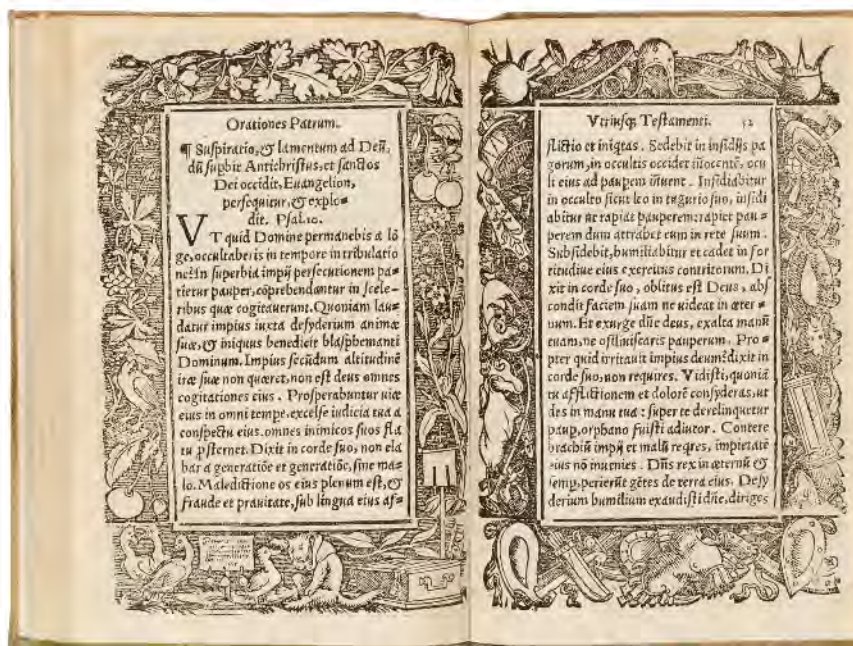 Orationes Patrum.
¶ Suspiratio, & lamentum ad Deū,
dū supbit Antichristus, et sanctos
Dei occidit, Euangelion,
persequitur, & explo-
dit. Psal. 10.
VT quid Domine permanebis a lō
ge, occultaberis in tempore in tribulatio
ne? In superbia impij persecutionem pa-
tietur pauper, cōprehendantur in scele-
ribus quæ cogitauerunt. Quoniam lau-
datur impius iuxta desyderium animæ
suæ, & iniquus benedicit blasphemanti
Dominum. Impius secūdum altitudinē
iræ suæ non quæret, non est deus omnes
cogitationes eius. Prosperabuntur uiæ
eius in omni tempe, excelse iudicia tua a
conspectu eius. omnes inimicos suos fla
tu psternet. Dixit in corde suo, non ela
bar a generatiōe et generatiōe, sine ma-
lo. Maledictione os eius plenum est, &
fraude et prauitate, sub lingua eius af-
Vtriusq; Testamenti. 52
flictio et iniqtas. Sedebit in insidijs pa
gorum, in occultis occidet īnocentē, ocu
li eius ad paupem ītuent. Insidiabitur
in occulto sicut leo in tugurio suo, insidi
abitur ut rapiat pauperem: rapiet pau-
perem dum attrahet eum in rete suum.
Subsidebit, humiliabitur et cadet in for
titudine eius exercitus contritorum. Di
xit in corde suo, oblitus est Deus, abs
condit faciem suam ne uideat in æter-
num. Et exurge dn̄e deus, exalta manū
tuam, ne obliuiscaris pauperum. Pro-
pter quid irritauit impius deum? dixit in
corde suo, non requires. Vidisti, quoniā
tu afflictionem et dolorē consyderas, ut
des in manu tua: super te derelinquetur
paup, orphano fuisti adiutor. Contere
brachiū impij et malū reqres, impietatē
eius nō inuenies. Dn̄s rex in æternū &
semp, perierūt gētes de terra eius. Desy
derium humilium exaudisti dn̄e, diriges